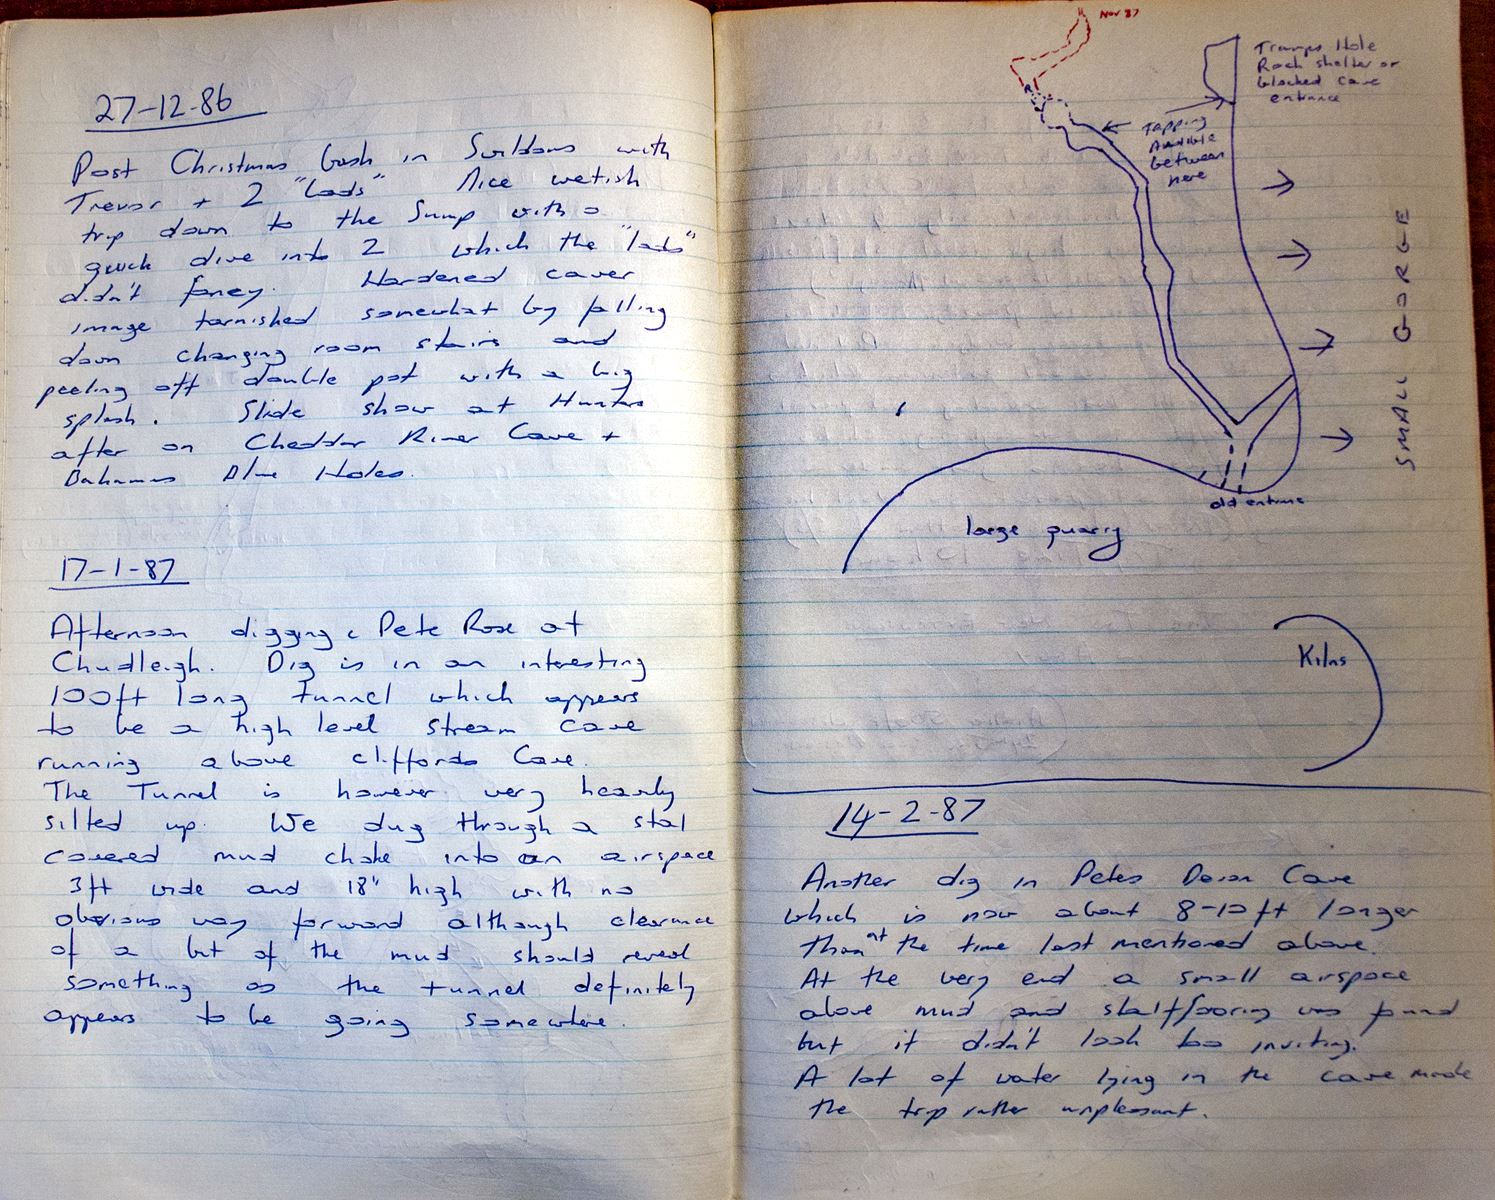 27-12-86
Post Christmas bash in Swildons with
Trevor + 2 "Lads" Nice wetish
trip down to the Sump with a
quick dive into 2 which the "lads"
didn't fancy. Hardened caver
image tarnished somewhat by falling
down changing room stairs and
peeling off double pot with a big
splash. Slide show at Hunters
after on Cheddar River Cave +
Bahamas Blue Holes.
17-1-87
Afternoon digging c Pete Rose at
Chudleigh. Dig is in an interesting
100ft long tunnel which appears
to be a high level stream cave
running above Cliffords Cave.
The Tunnel is however very heavily
silted up. We dug through a stal
covered mud choke into an airspace
3ft wide and 18" high with no
obvious way forward although clearance
of a bit of the mud should reveal
something as the tunnel definitely
appears to be going somewhere.
Nov 87
Tramps Hole
Rock shelter or
blocked cave
entrance
Tapping
Audible
between
here
SMALL GORGE
old entrance
large quarry
Kilns
14-2-87
Another dig in Petes Cave
which is now about 8-10ft longer
than at the time last mentioned above.
At the very end a small airspace
above mud and stalflooring was found
but it didn't look too inviting.
A lot of water lying in the cave made
the trip rather unpleasant.